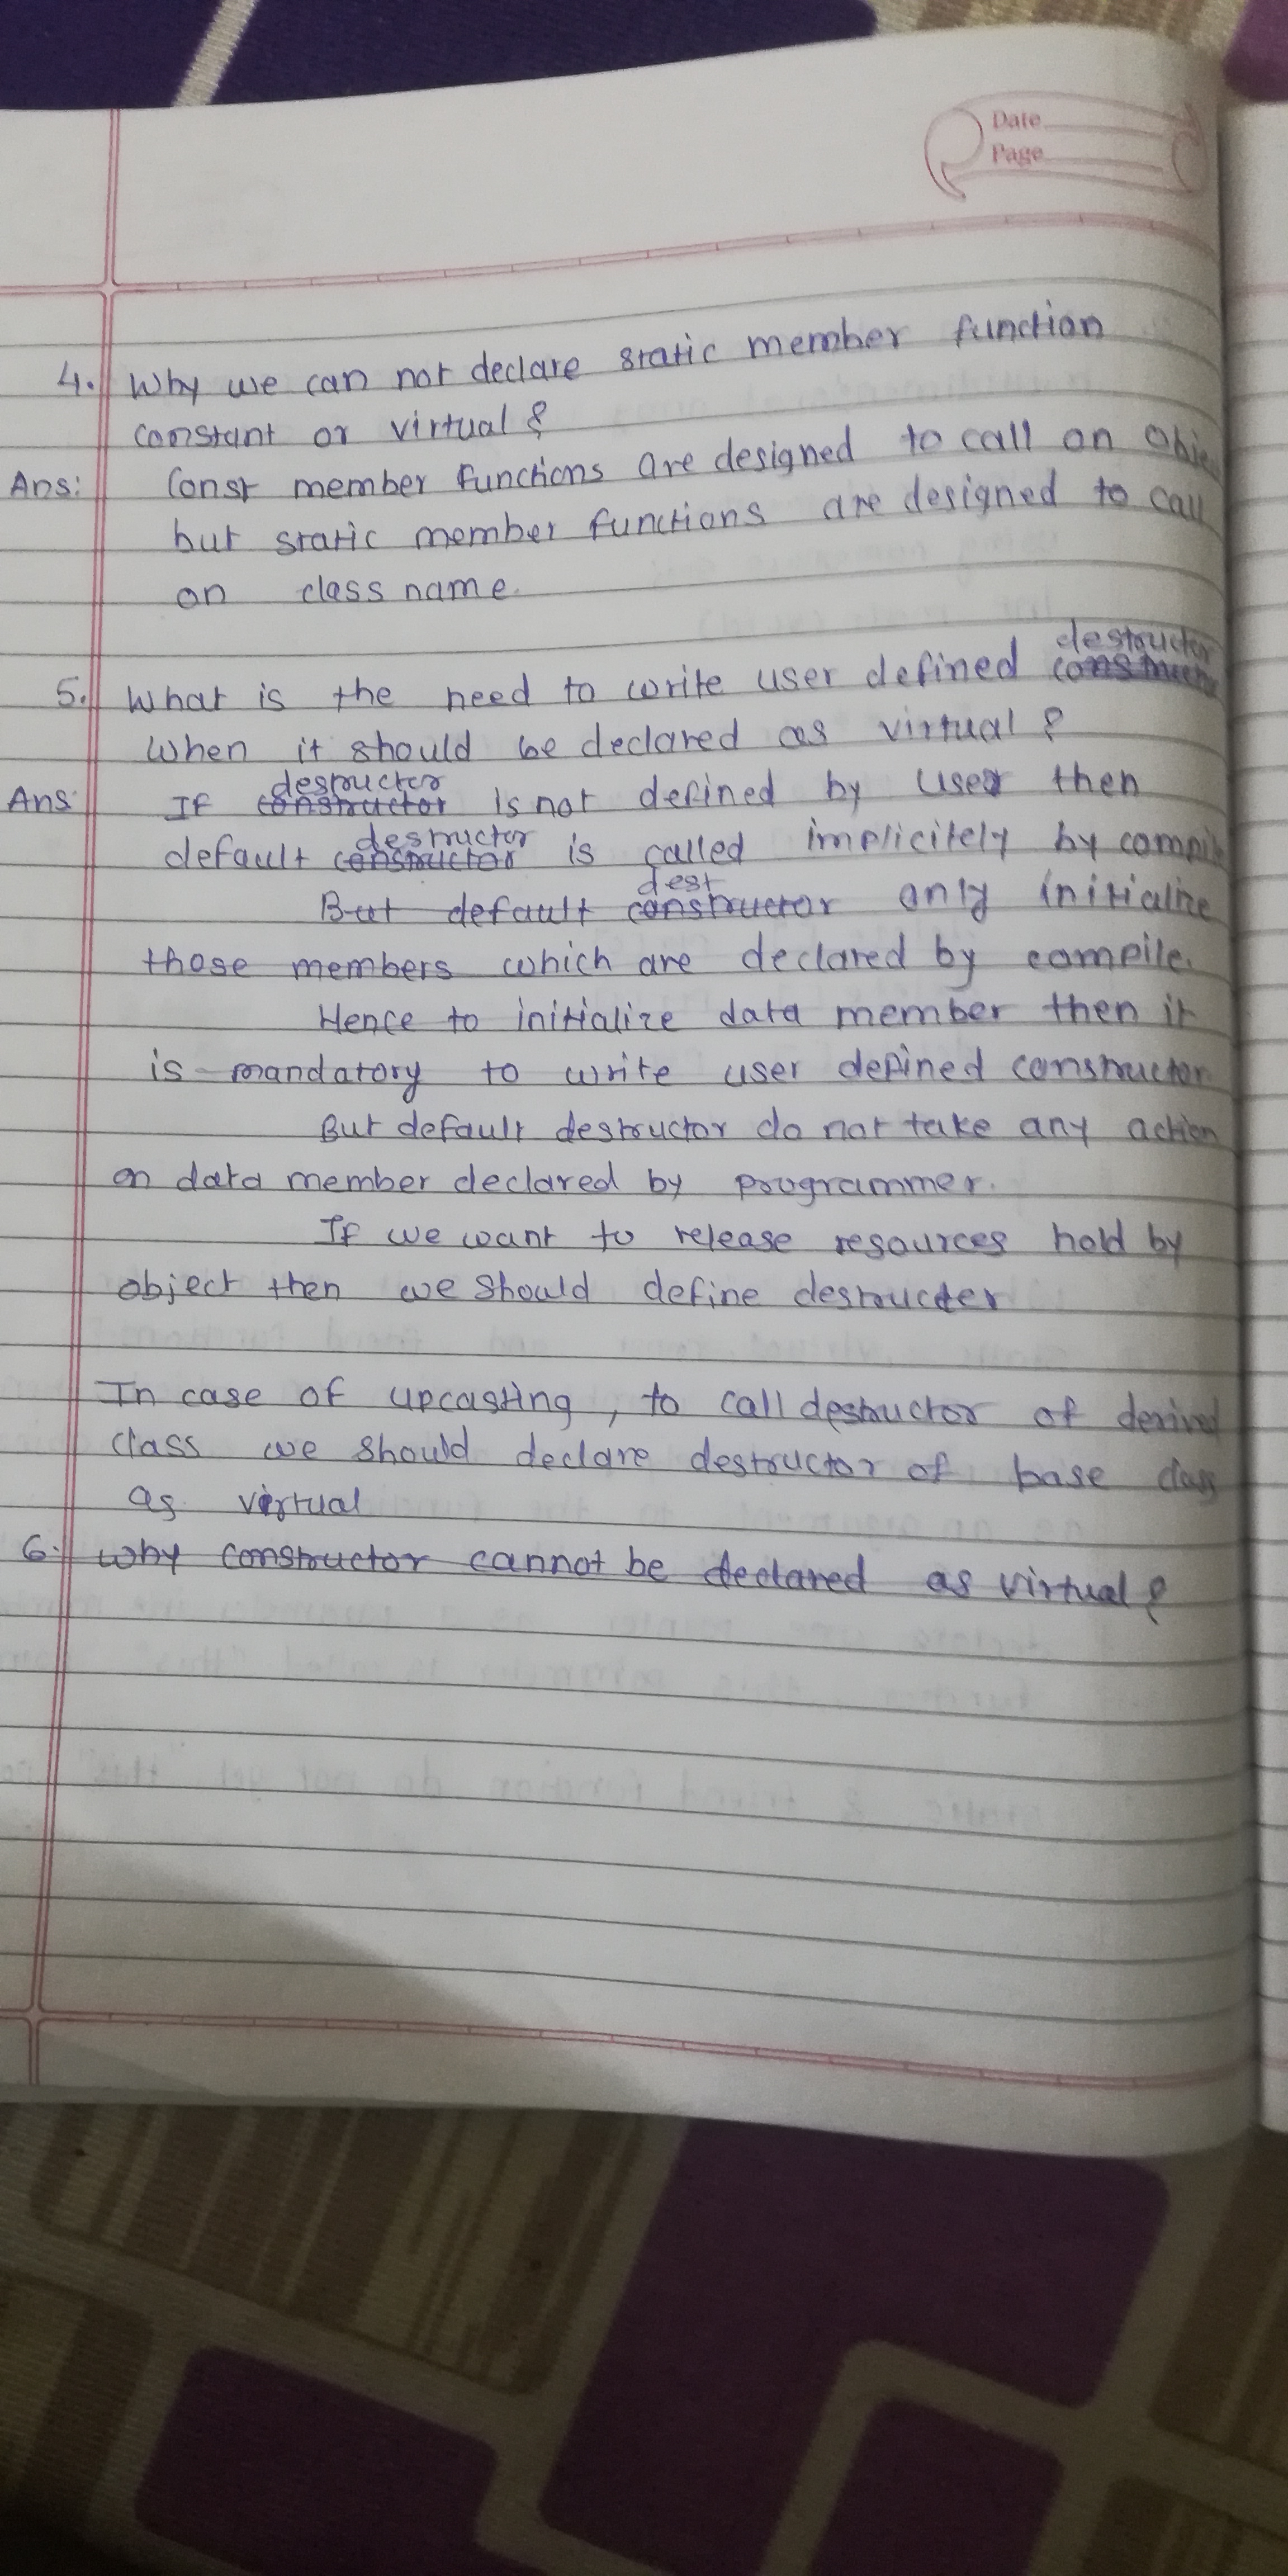 Date
Page
4. Why we can not declare static member function
constant or virtual ?
Ans: Const member functions are designed to call on
but static member functions are designed to call
on class name.
destructor
5. What is the need to write user defined
When it should be declared as virtual ?
destructor
Ans: If constructor is not defined by user then
destructor
default constructor is called implicitely by
dest
But default constructor only initialize
those members which are declared by compile.
Hence to initialize data member then it
is mandatory to write user defined constructor
But default destructor do not take any action
on data member declared by programmer.
If we want to release resources hold by
object then we should define destructer
In case of upcasting, to call destructor of derived
class we should declare destructor of base class
as virtual
6. Why constructor cannot be declared as virtual ?